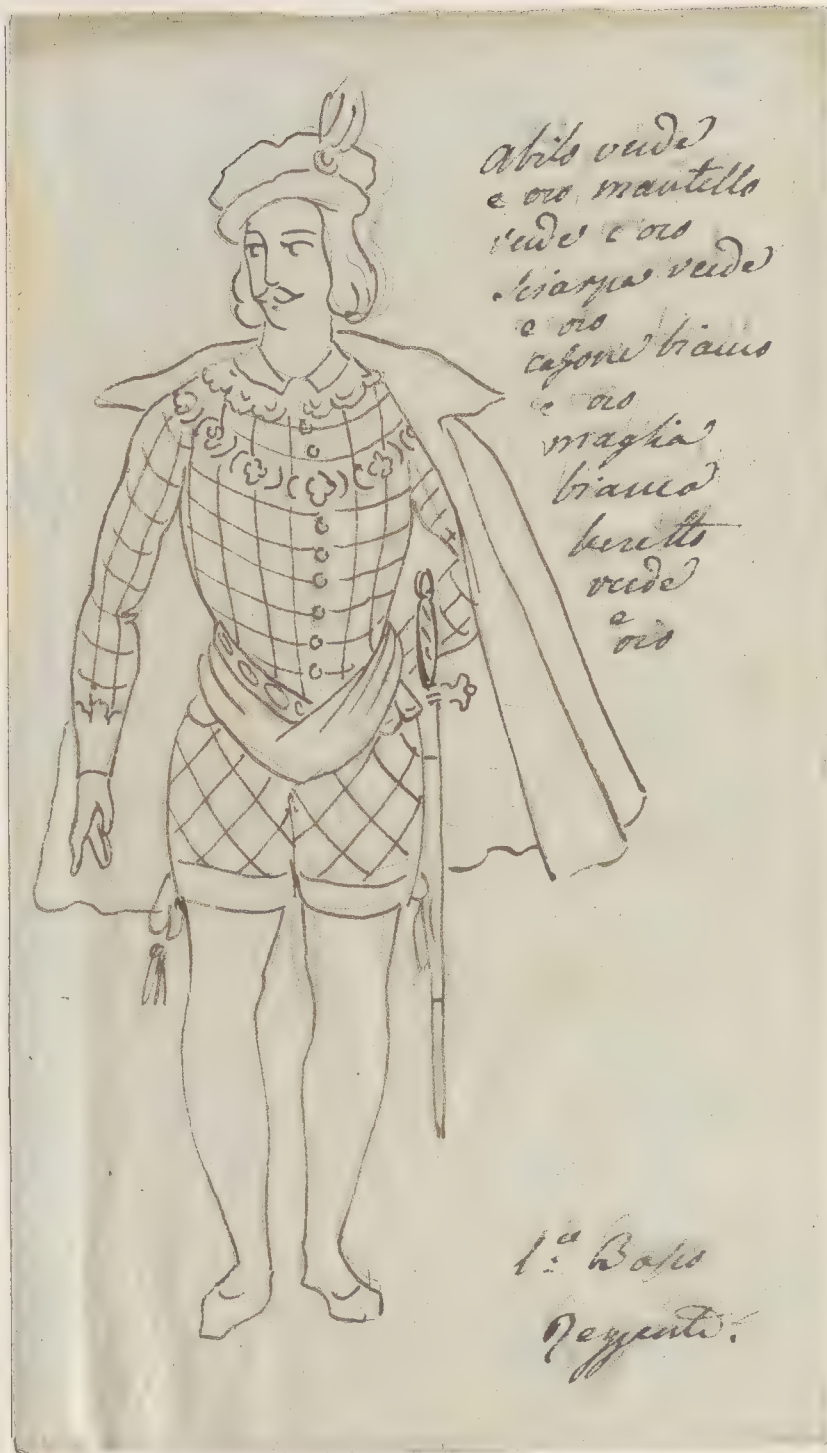 Abito verde
e oro mantello
verde e oro
sciarpa verde
e oro
calzone bianco
e oro
maglia
bianca
beretto
verde
e
oro
1.º Basso
Reggente.